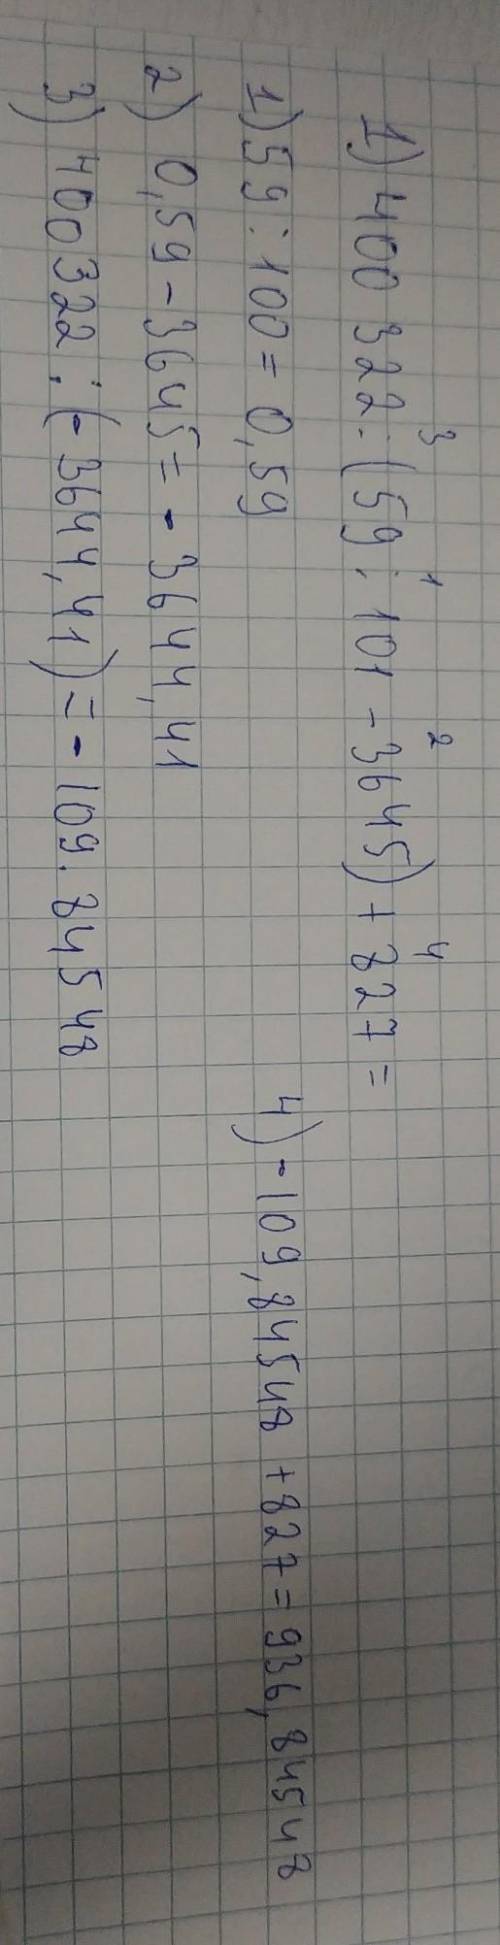 1) 400 322 : (59 : 101 - 3645) + 827 =
3 1 2 4
1) 59 : 100 = 0,59
2) 0,59 - 3645 = - 3644,41
3) 400322 : (- 3644,41) = - 109.84548
4) - 109,84548 + 827 = 936,84548